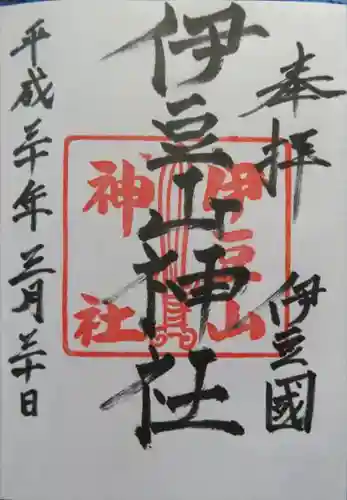 奉拝
伊豆國
伊豆山神社
伊豆山
神社
平成三十年三月三十日